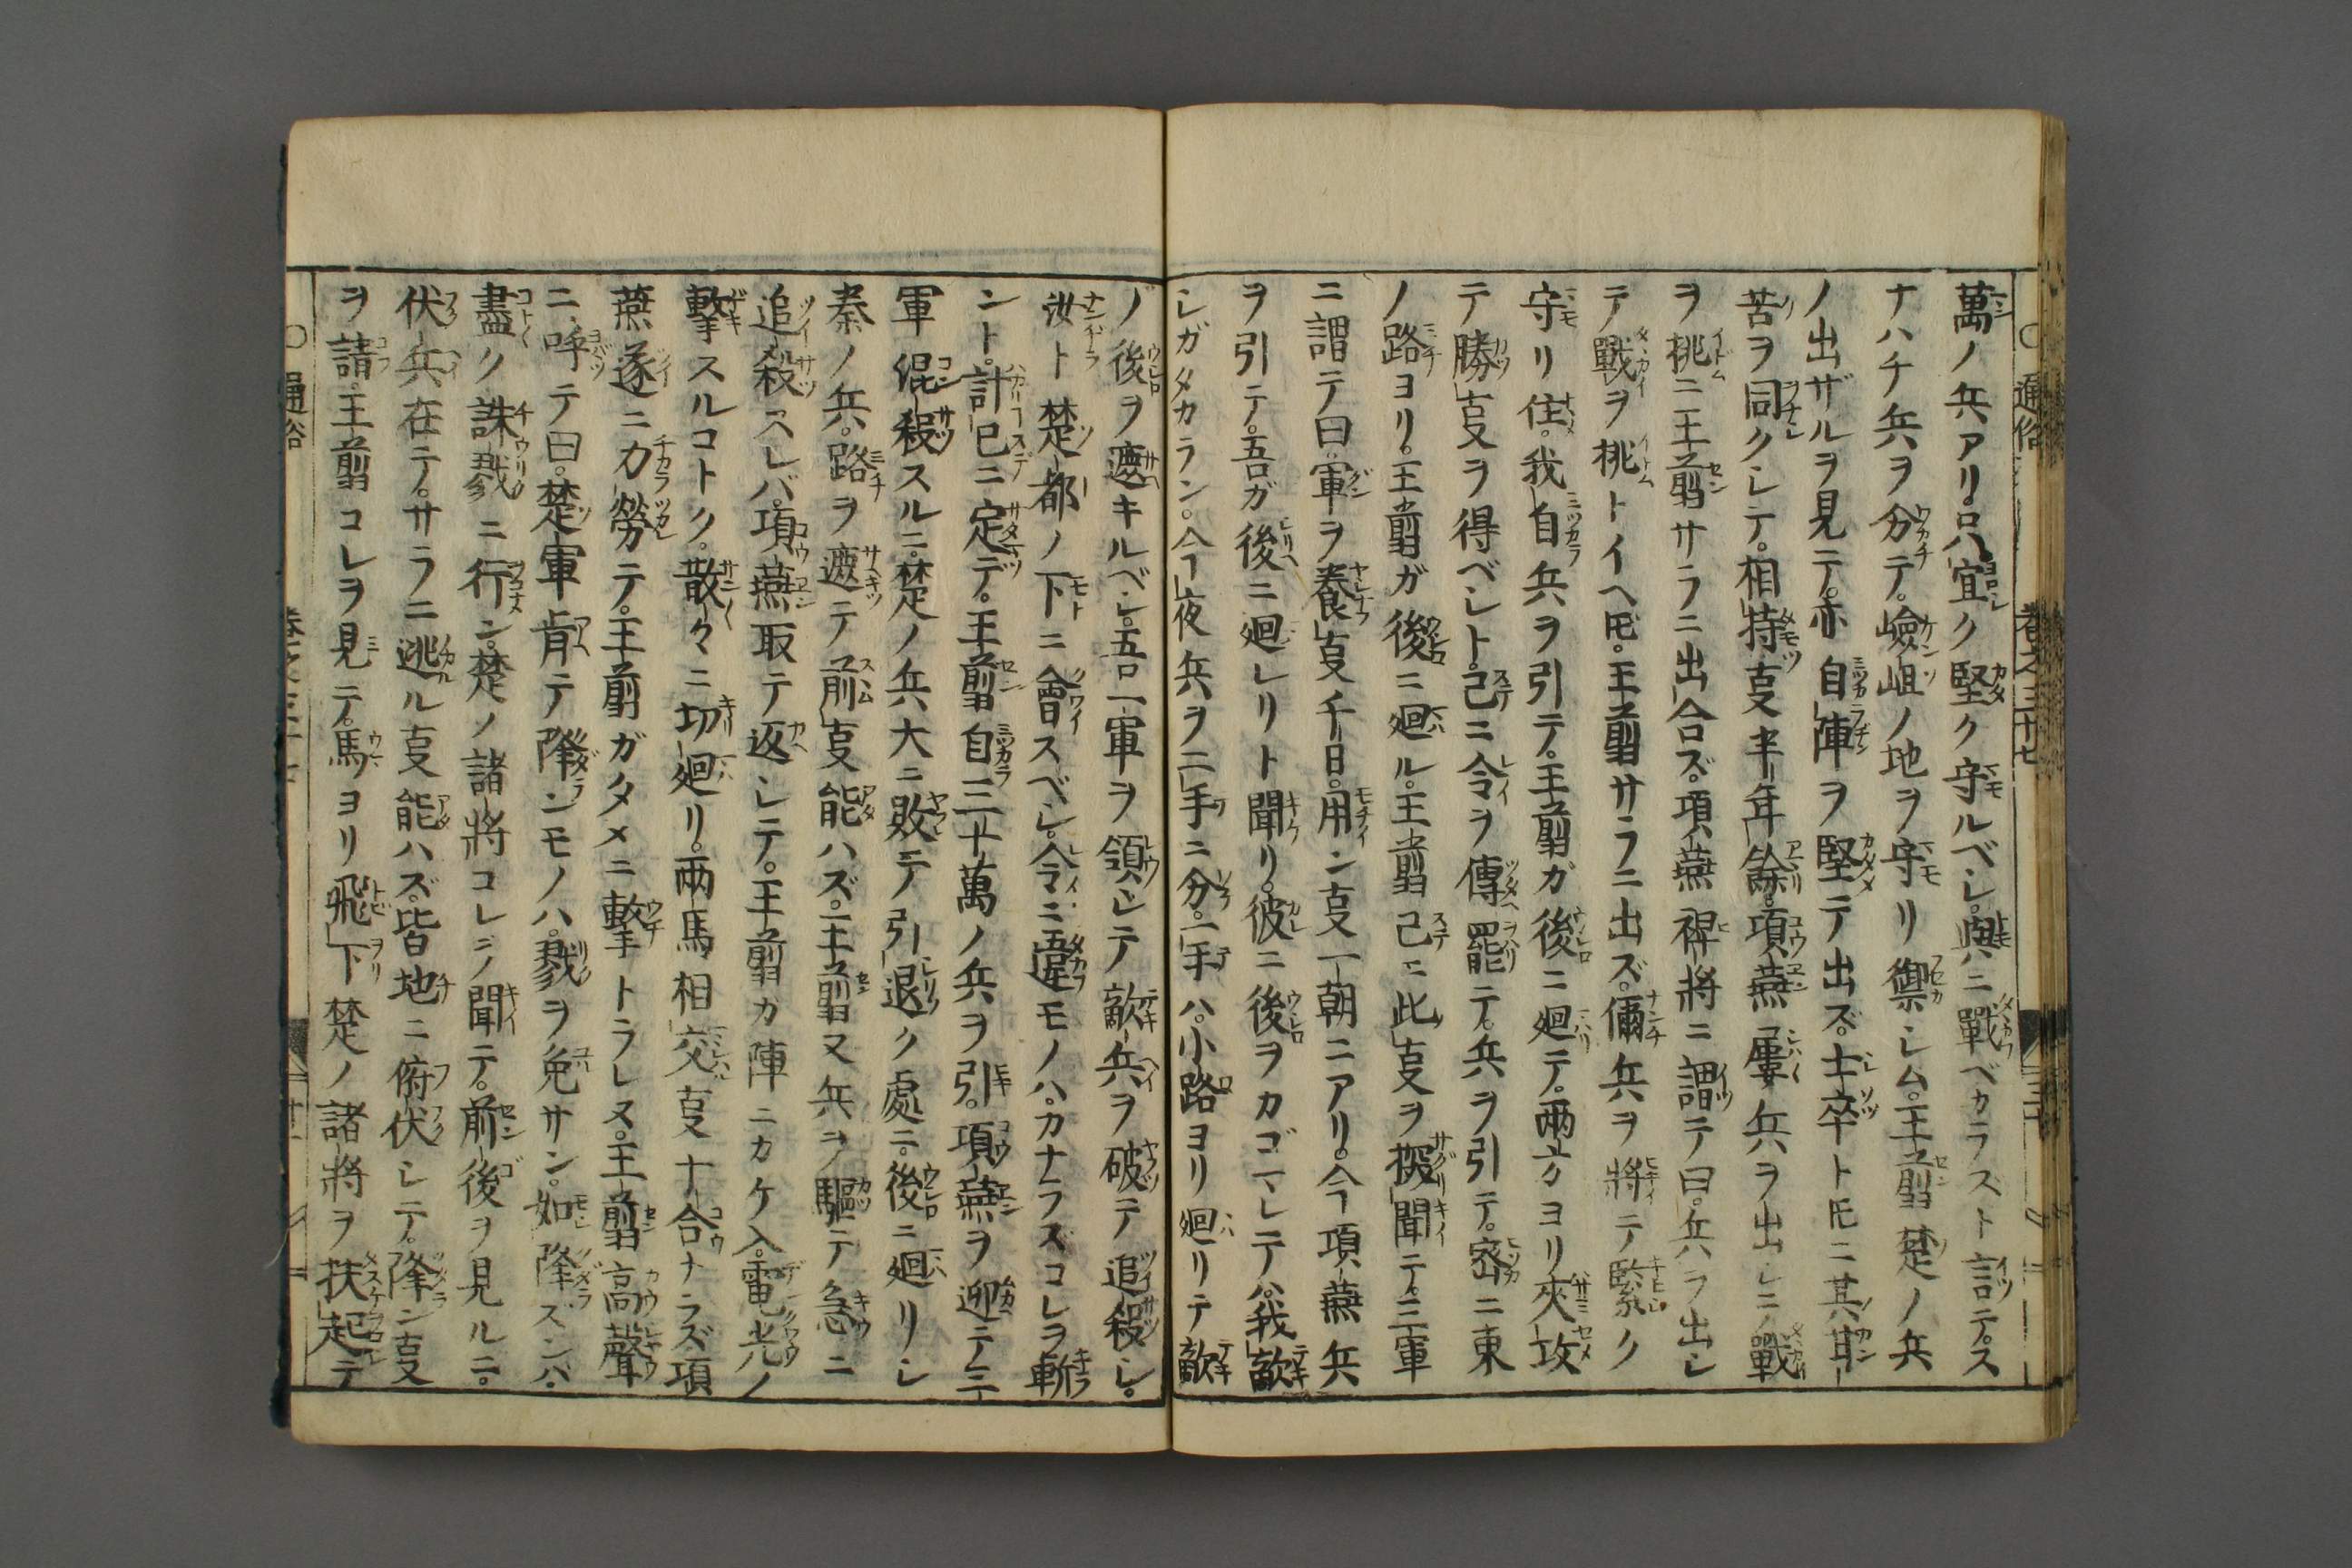 通俗 巻之三十七 三十
萬ノ兵アリ。只宜ク堅ク守ルベシ。與ニ戰ベカラスト言テ。ス
ナハチ兵ヲ分テ。嶮岨ノ地ヲ守リ禦シム。王翦楚ノ兵
ノ出ザルヲ見テ。亦自陣ヲ堅テ出ズ。士卒トモニ其甘
苦ヲ同クシテ。相持㕝半年餘。項燕屢兵ヲ出シ戰
ヲ挑ニ王翦サラニ出合ズ。項燕裨將ニ謂テ曰。兵ヲ出シ
テ戰ヲ挑トイヘ𪜈。王翦サラニ出ズ。儞兵ヲ將テ緊ク
守リ住。我自兵ヲ引テ。王翦ガ後ニ廻テ。兩方ヨリ夾攻
テ勝㕝ヲ得ベシト。已ニ令ヲ傳罷テ。兵ヲ引テ。密ニ東
ノ路ヨリ。王翦ガ後ニ廻ル。王翦已ニ此㕝ヲ探聞テ。三軍
ニ謂テ曰。軍ヲ養㕝千日。用ン㕝一朝ニアリ。今項燕兵
ヲ引テ。吾ガ後ニ廻レリト聞リ。彼ニ後ヲカゴマレテハ。我敵
シガタカラン。今夜兵ヲ二手ニ分。一手ハ。小路ヨリ廻リテ敵
ノ後ヲ遮キルベシ。吾一軍ヲ領シテ敵兵ヲ破テ追殺シ。
汝ト楚都ノ下ニ會スベシ。令ニ違モノハ。カナラズコレヲ斬
ント。計已ニ定テ。王翦自三十萬ノ兵ヲ引。項燕ヲ迎テ三
軍混殺スルニ。楚ノ兵大ニ敗テ引退ク處ニ。後ニ廻リシ
秦ノ兵。路ヲ遮テ前㕝能ハズ。王翦又兵ヲ驅テ急ニ
追殺スレバ。項燕取テ返シテ。王翦カ陣ニカケ入。電光ノ
撃スルコトク。散々ニ切廻リ。兩馬相交㕝十合ナラズ項
燕遂ニ力勞テ。王翦ガタメニ撃トラレヌ。王翦高聲
ニ呼テ曰。楚軍肯テ降ンモノハ。戮ヲ免サン。如降ズンハ。
盡ク誅戮ニ行ン。楚ノ諸將コレヲ聞テ。前後ヲ見ルニ。
伏兵在テ。サラニ逃ル㕝能ハズ。皆地ニ俯伏シテ。降ン㕝
ヲ請。王翦コレヲ見テ。馬ヨリ飛下楚ノ諸將ヲ扶起テ
通俗